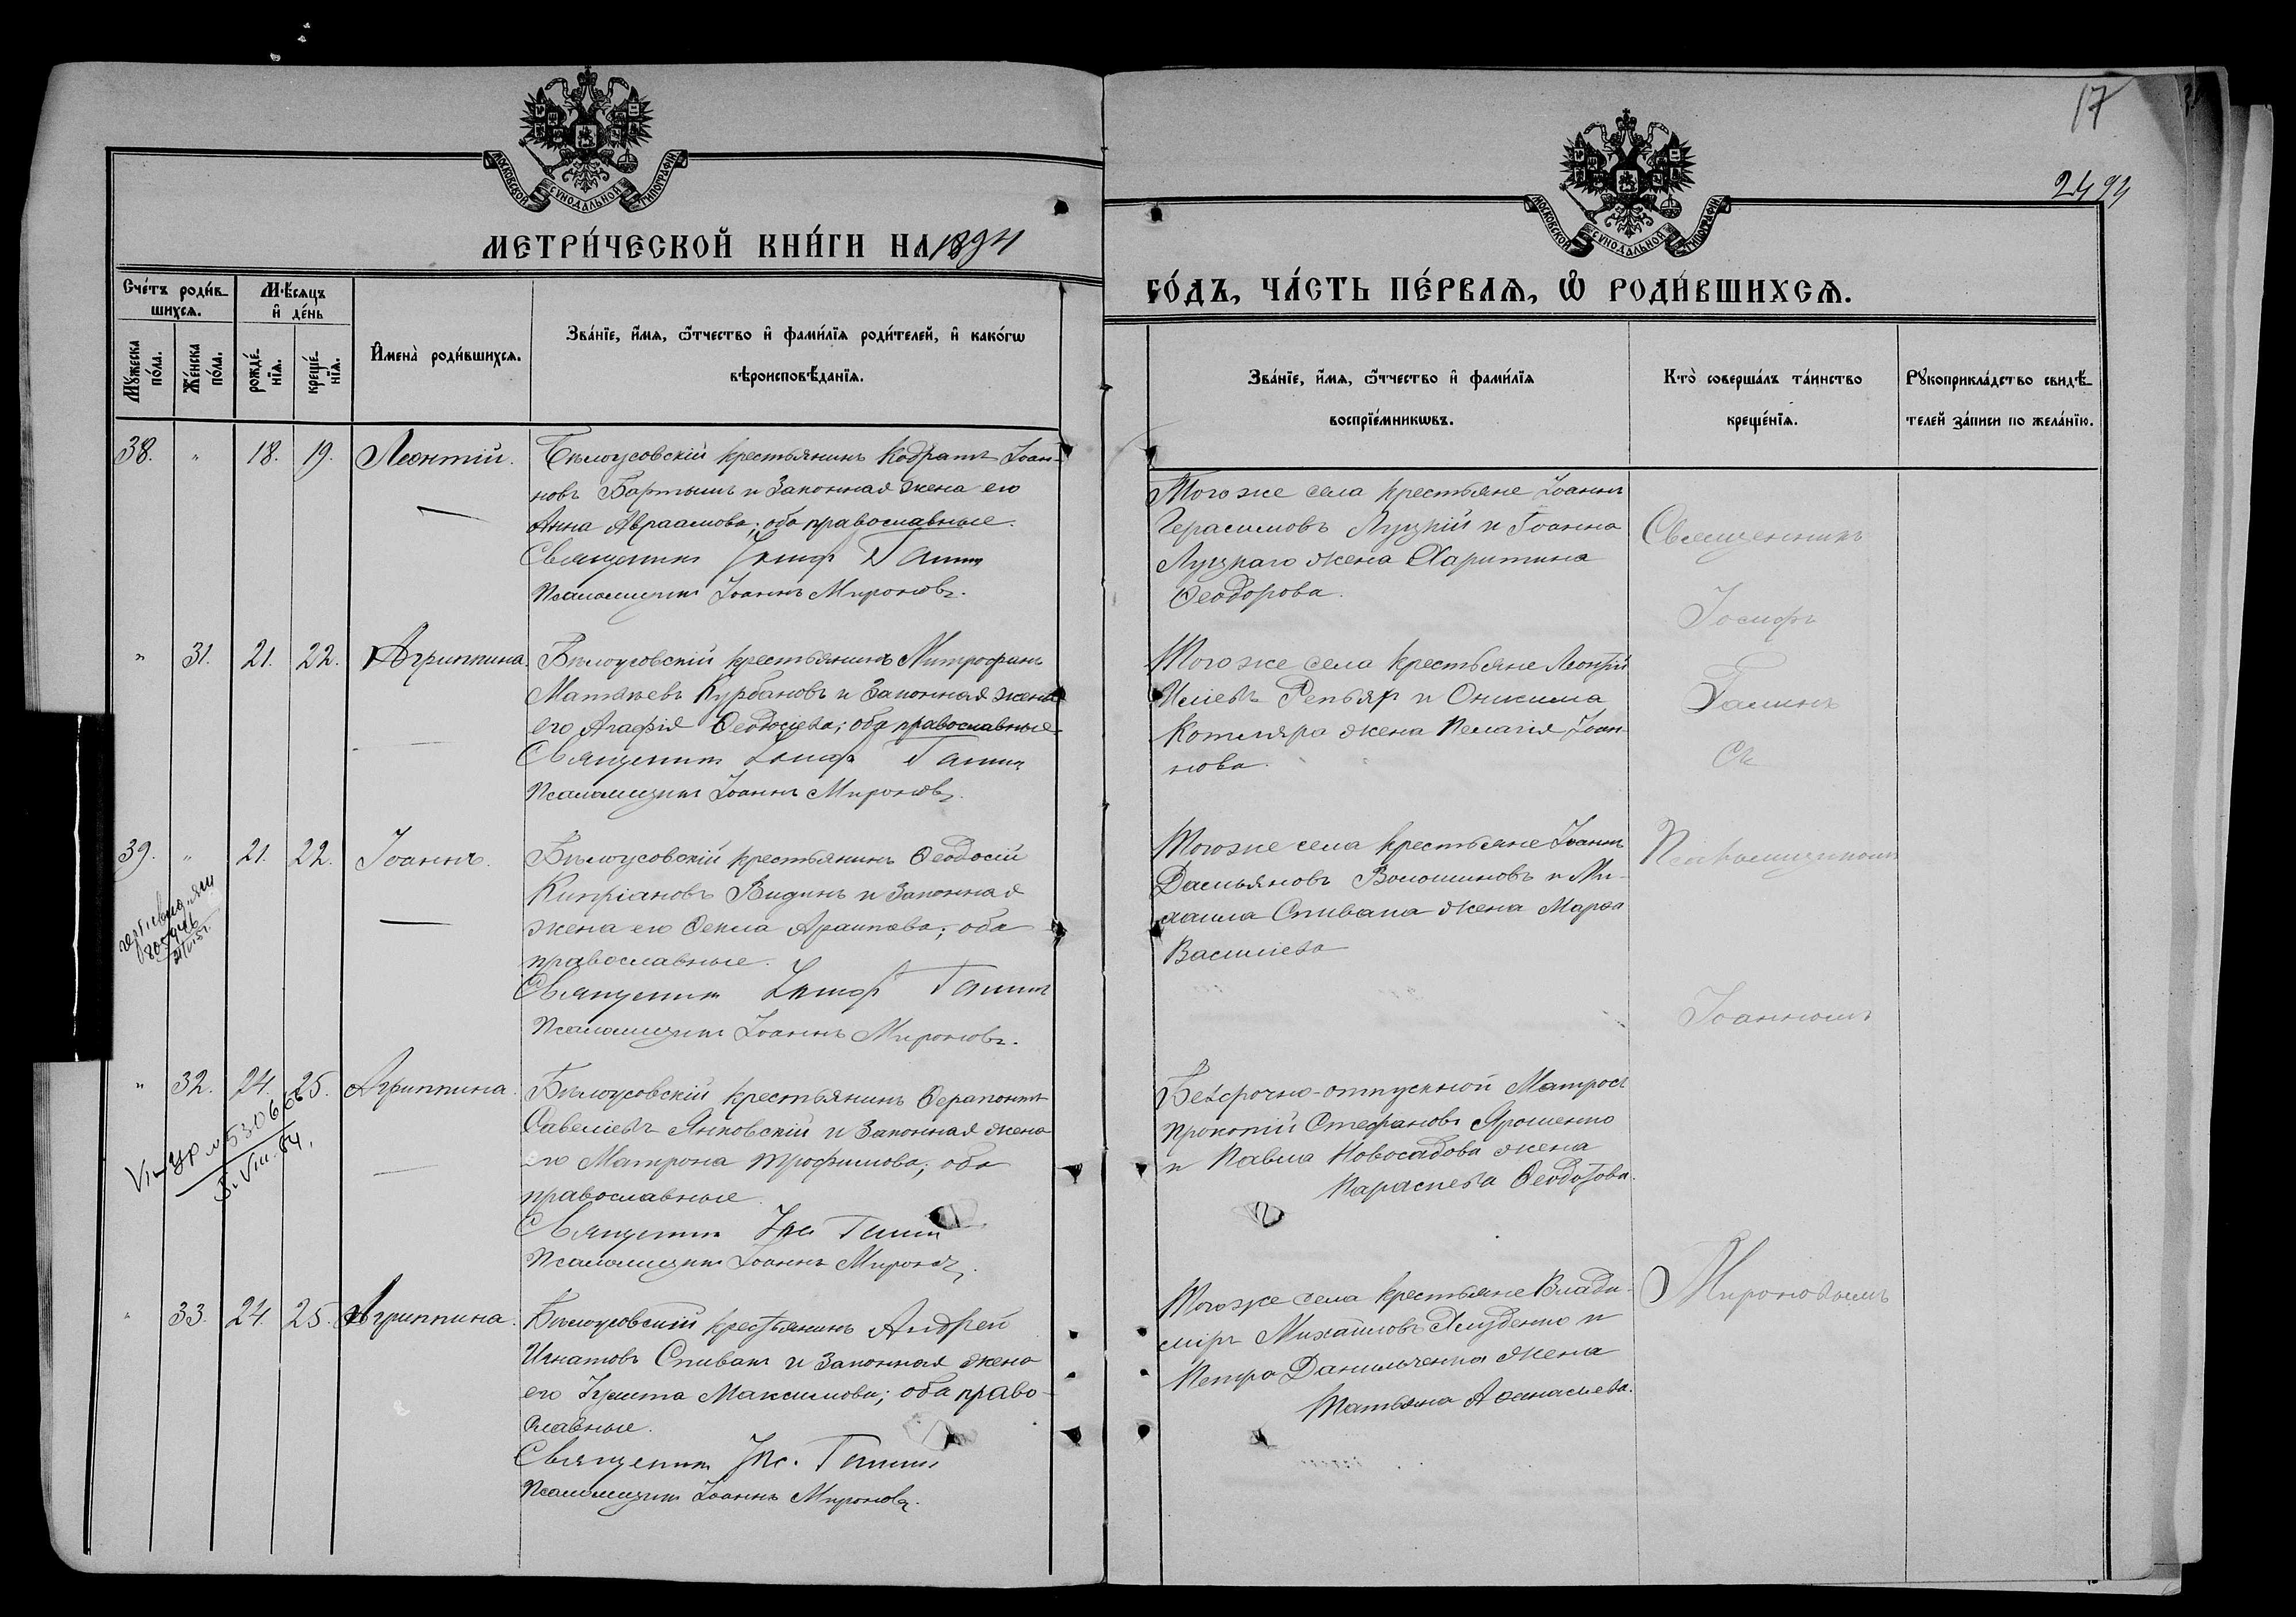 17
2494
МОСКОВСКОЙ СѴНОДАЛЬНОЙ ТИПОГРАФІИ
МОСКОВСКОЙ СѴНОДАЛЬНОЙ ТИПОГРАФІИ
МЕТРИ́ЧЕСКОЙ КНИ́ГИ НА 1894
ГО́ДЪ, ЧА́СТЬ ПЕ́РВАѦ, Ѡ РОДИ́ВШИХСѦ.
Сче́тъ роди́в-
шихсѧ.
Мꙋ́жеска по́ла.
Же́нска по́ла.
Мѣ́сѧцъ
и҆ де́нь
рожде́-
нїѧ.
креще́-
нїѧ.
И҆мена̀ роди́вшихсѧ.
Зва́нїе, и҆́мѧ, ѿтчество и҆ фами́лїѧ роди́телей, и҆ како́гѡ
вѣроисповѣ́данїѧ.
Зва́нїе, и҆́мѧ, ѿтчество и҆ фами́лїѧ
воспрїе́мникѡвъ.
Кто̀ соверша́лъ та́инство
креще́нїѧ.
Рꙋкоприкла́дство свидѣ́-
телей за́писи по жела́нїю.
38. " 18. 19. Леонтій.
Бѣлоусовскій крестьянинъ Кодратъ Іоан-
новъ Бартышъ и законная жена его
Анна Авраамова; оба православные.
Священникъ Іосифъ Ганинъ
Псаломщикъ Іоаннъ Мироновъ.
Того же села крестьяне Іоаннъ
Герасимовъ Луцкій и Іоанна
Луцкаго жена Харитина
Ѳеодорова.
" 31. 21. 22. Агриппина.
Бѣлоусовскій крестьянинъ Митрофанъ
Матѳіевъ Курбановъ и законная жена
его Агафія Ѳеодосіева; оба православные.
Священникъ Іосифъ Ганинъ
Псаломщикъ Іоаннъ Мироновъ.
Того же села крестьяне Леонтій
Иліевъ Репьяхъ и Онисима
Котляра жена Пелагія Іоан-
нова.
39. " 21. 22. Іоаннъ.
Бѣлоусовскій крестьянинъ Ѳеодосій
Кипріановъ Видинъ и законная
жена его Ѳекла; оба
православные.
Священникъ Іосифъ Ганинъ
Псаломщикъ Іоаннъ Мироновъ.
Того же села крестьяне Іоаннъ
Дамьяновъ Волошиновъ и Ми-
хаила Спивака жена Марѳа
Василіева
" 32. 24. 25. Агриппина.
Бѣлоусовскій крестьянинъ Ѳерапонтъ
Савеліевъ Янковскій и законная жена
его Матрона Трофимова; оба
православные.
Священникъ Іос. Ганинъ
Псаломщикъ Іоаннъ Мироновъ.
Безсрочно-отпускной матросъ
Прокопій Стефановъ Ярошенко
и Павла Новосадова жена
Параскева Ѳеодотова.
" 33. 24. 25. Агриппина.
Бѣлоусовскій крестьянинъ Андрей
Игнатовъ Спивакъ и законная жена
его Іулитта Максимова; оба право-
славные.
Священникъ Іос. Ганинъ
Псаломщикъ Іоаннъ Мироновъ.
Того же села крестьяне Влади-
міръ Михаиловъ и
Петра Данильченка жена
Татьяна Аѳанасіева.
Священникъ
Іосифъ
Ганинъ
Съ
Псаломщикомъ
Іоанномъ
Мироновымъ